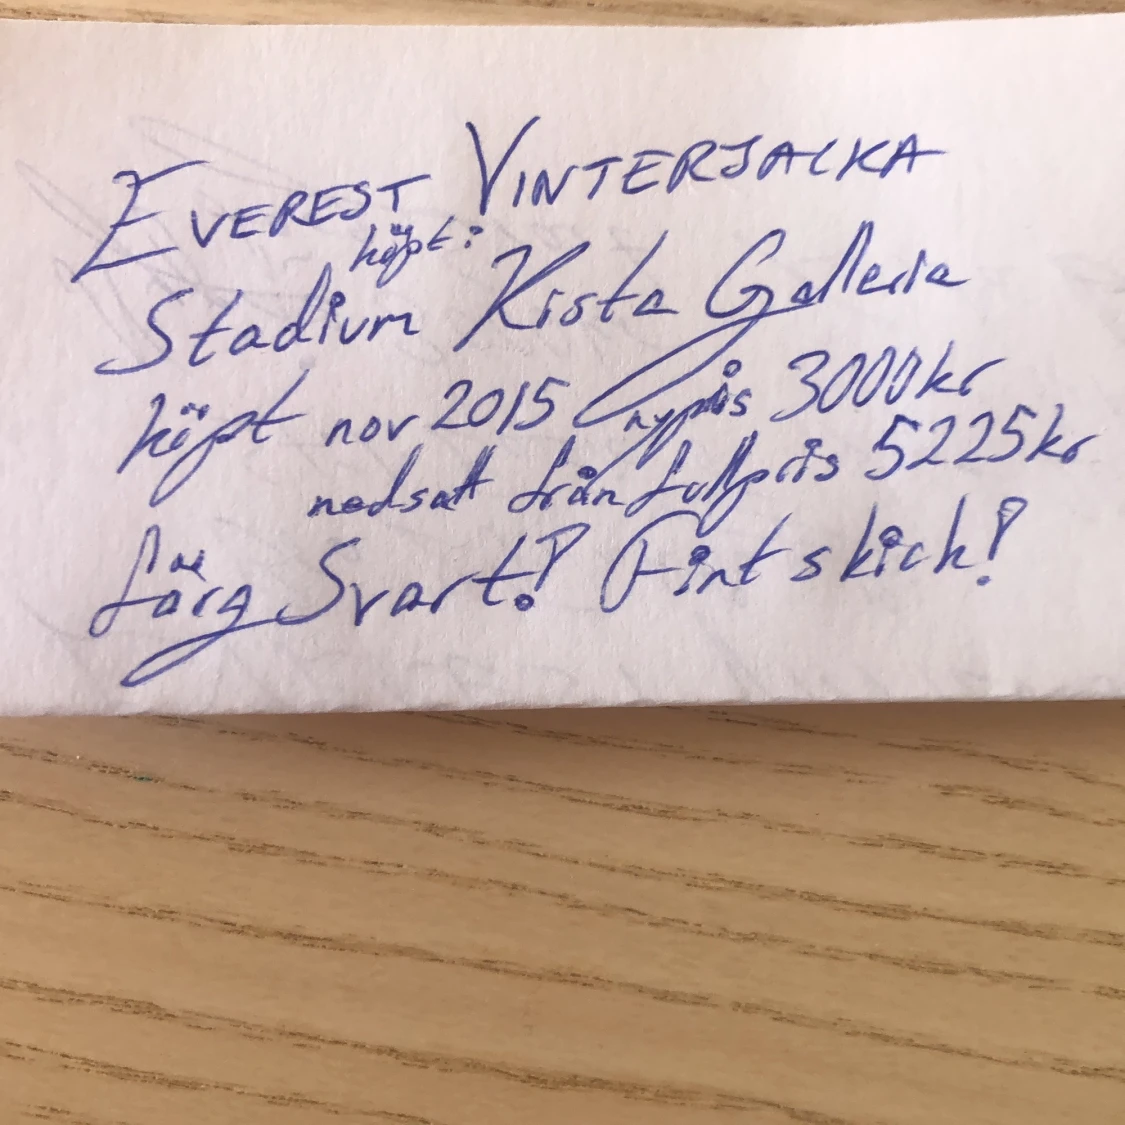 EVEREST VINTERJACKA
köpt:
Stadium Kista Galleria
köpt nov 2015 nypris 3000kr
nedsatt från fullpris 5225kr
färg Svart! Fint skick!